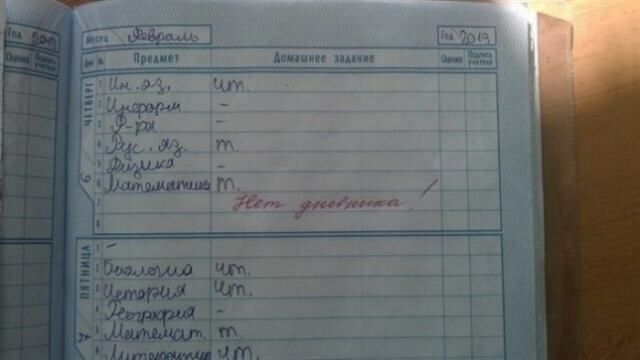 Год 2013
Месяц Февраль Год 2013
Оценка Подпись учителя
Дни № Предмет Домашнее задание Оценка Подпись учителя
ЧЕТВЕРГ
6
1 Ин. яз. чт.
2 Информ. -
3 Ф-ра -
4 Рус. яз. т.
5 Физика -
6 Математика т.
7 Нет дневника!
8
ПЯТНИЦА
1 -
2 Биология чт.
3 История чт.
4 География -
5 Математ. т.
6 Литература чт.